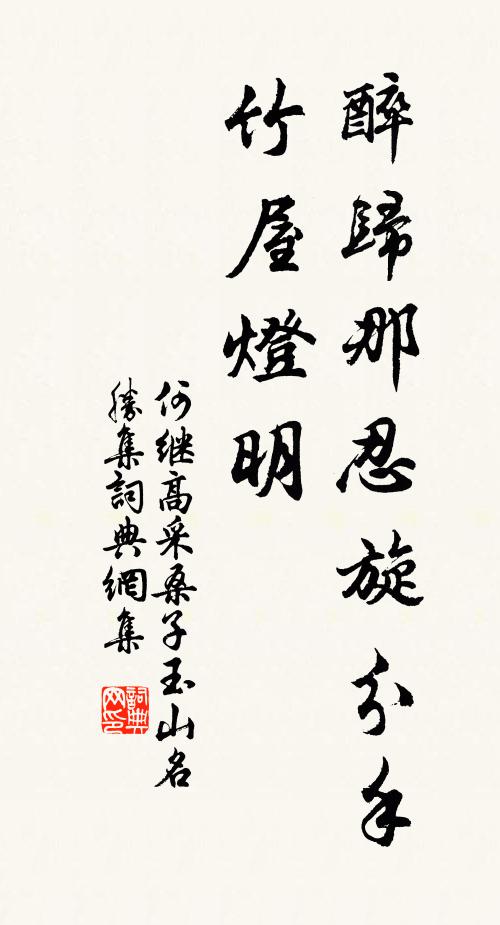 醉歸那忍旋分手
竹屋燈明
何继高采桑子玉山名
勝集詞典網集
詞典网印